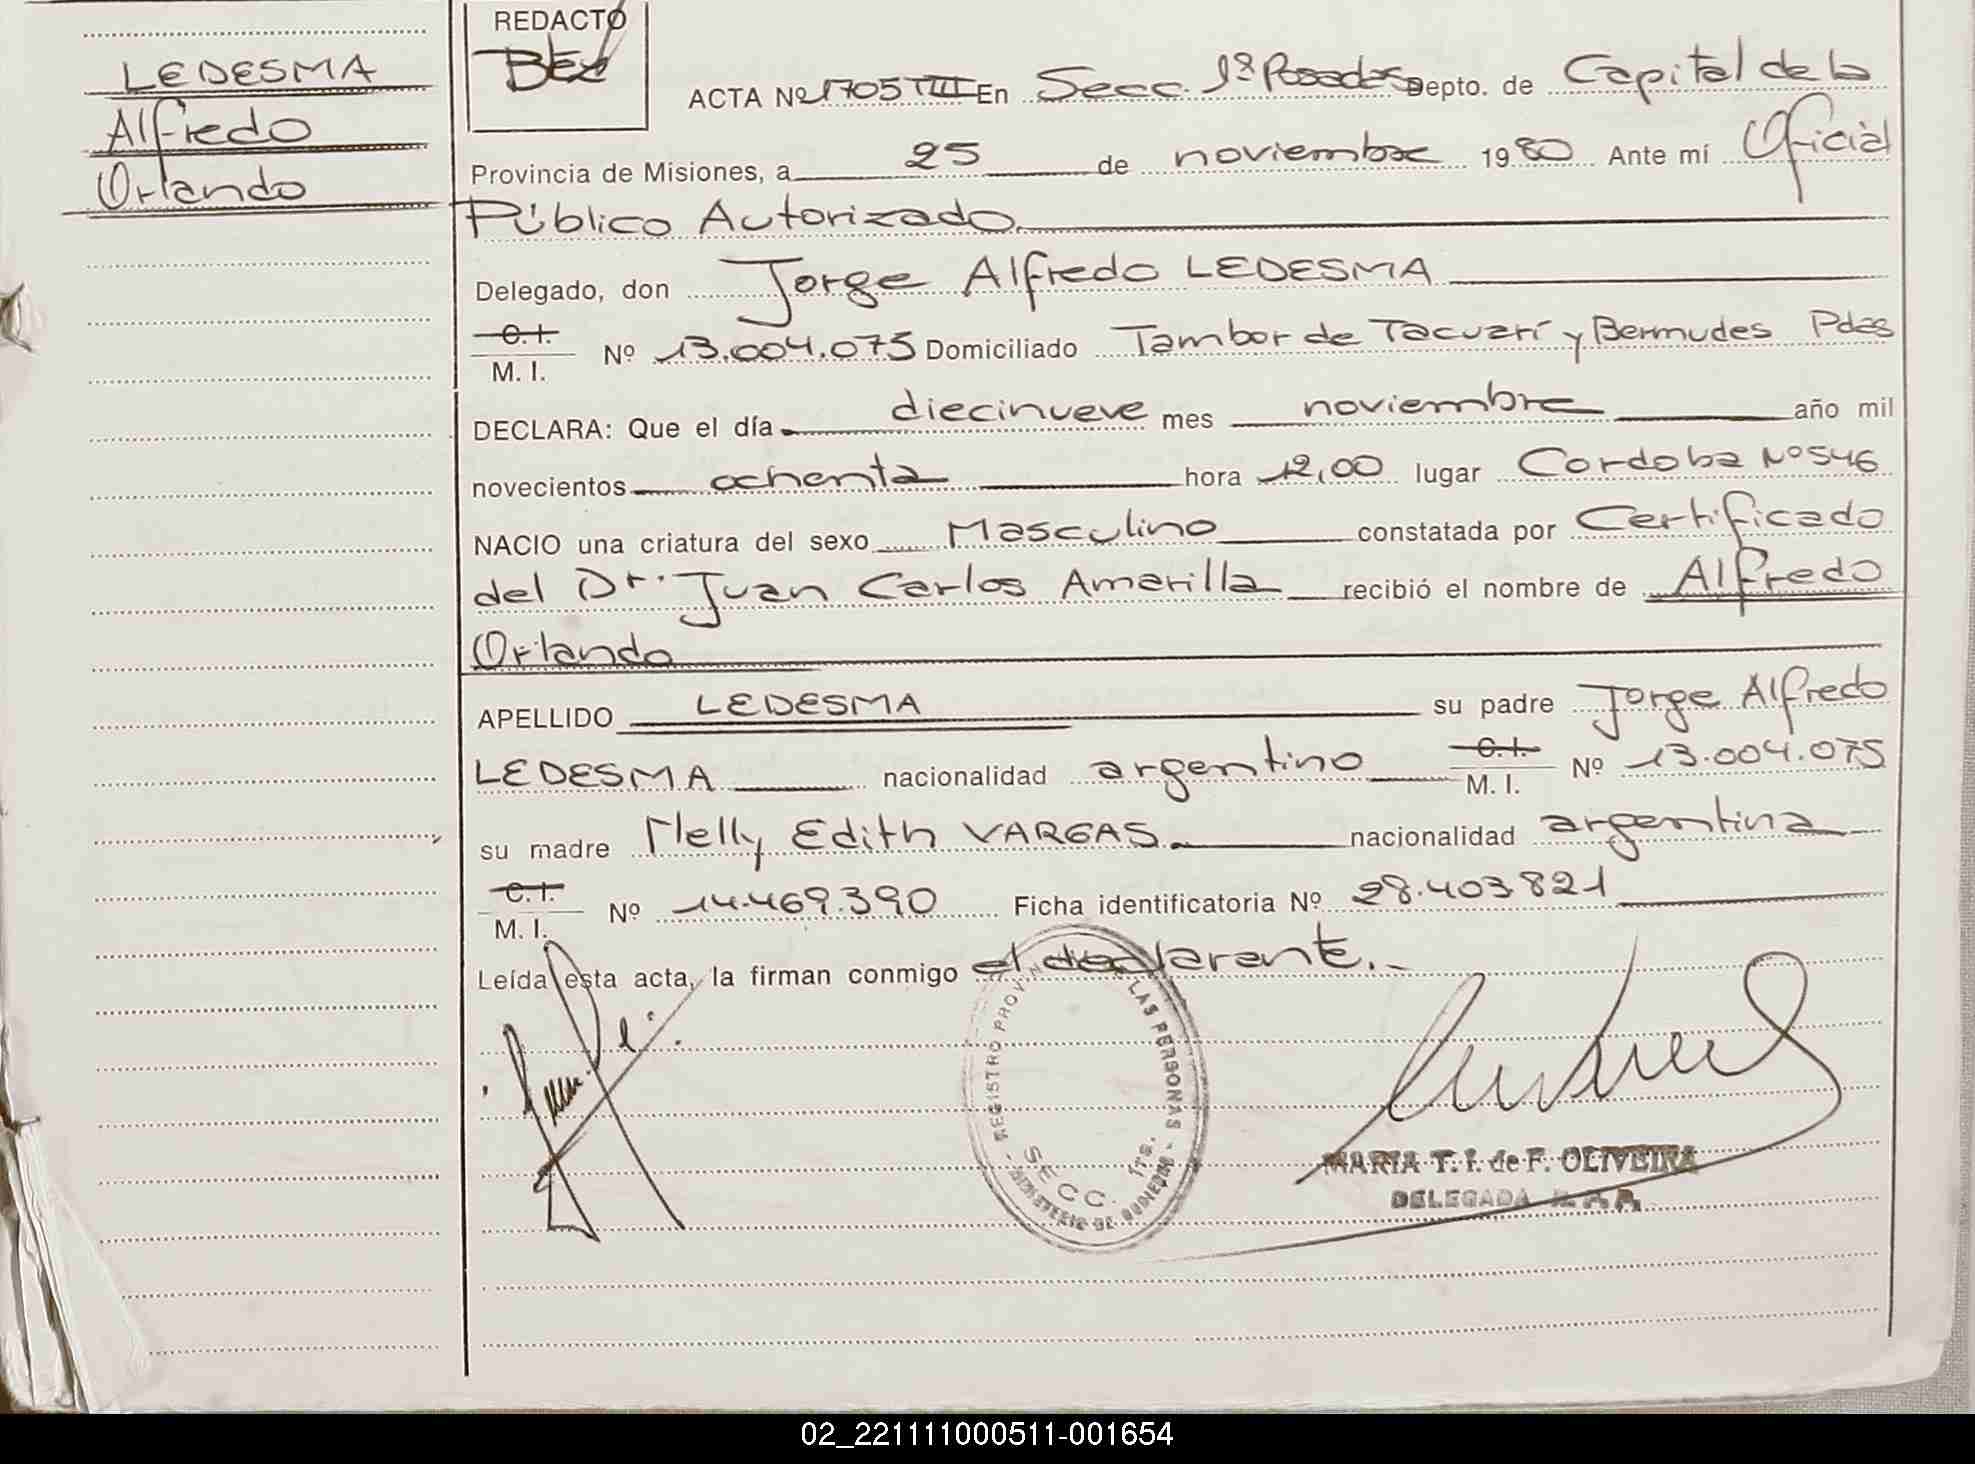 LEDESMA
Alfredo
Orlando
REDACTO
ACTA Nº 1705 TIII En Secc. 1ª Posadas Depto. de Capital de la
Provincia de Misiones, a 25 de noviembre 1980 Ante mí Oficial
Público Autorizado.
Delegado, don Jorge Alfredo LEDESMA
C.I.
M. I. Nº 13.004.075 Domiciliado Tambor de Tacuarí y Bermudes Pdas
DECLARA: Que el día diecinueve mes noviembre año mil
novecientos ochenta hora 12,00 lugar Cordoba Nº 546
NACIO una criatura del sexo Masculino constatada por Certificado
del Dr. Juan Carlos Amarilla recibió el nombre de Alfredo
Orlando
APELLIDO LEDESMA su padre Jorge Alfredo
LEDESMA nacionalidad argentino C.I. M. I. Nº 13.004.075
su madre Nelly Edith VARGAS. nacionalidad argentina
C.I.
M. I. Nº 14.469.390 Ficha identificatoria Nº 28.403.821
Leída esta acta, la firman conmigo el declarante.-
REGISTRO PROVIN LAS PERSONAS - MINISTERIO DE GOBIERNO -
SECC. 1ra.
MARIA T. I. de F. OLIVEIRA
DELEGADA R. P. P.
02_221111000511-001654